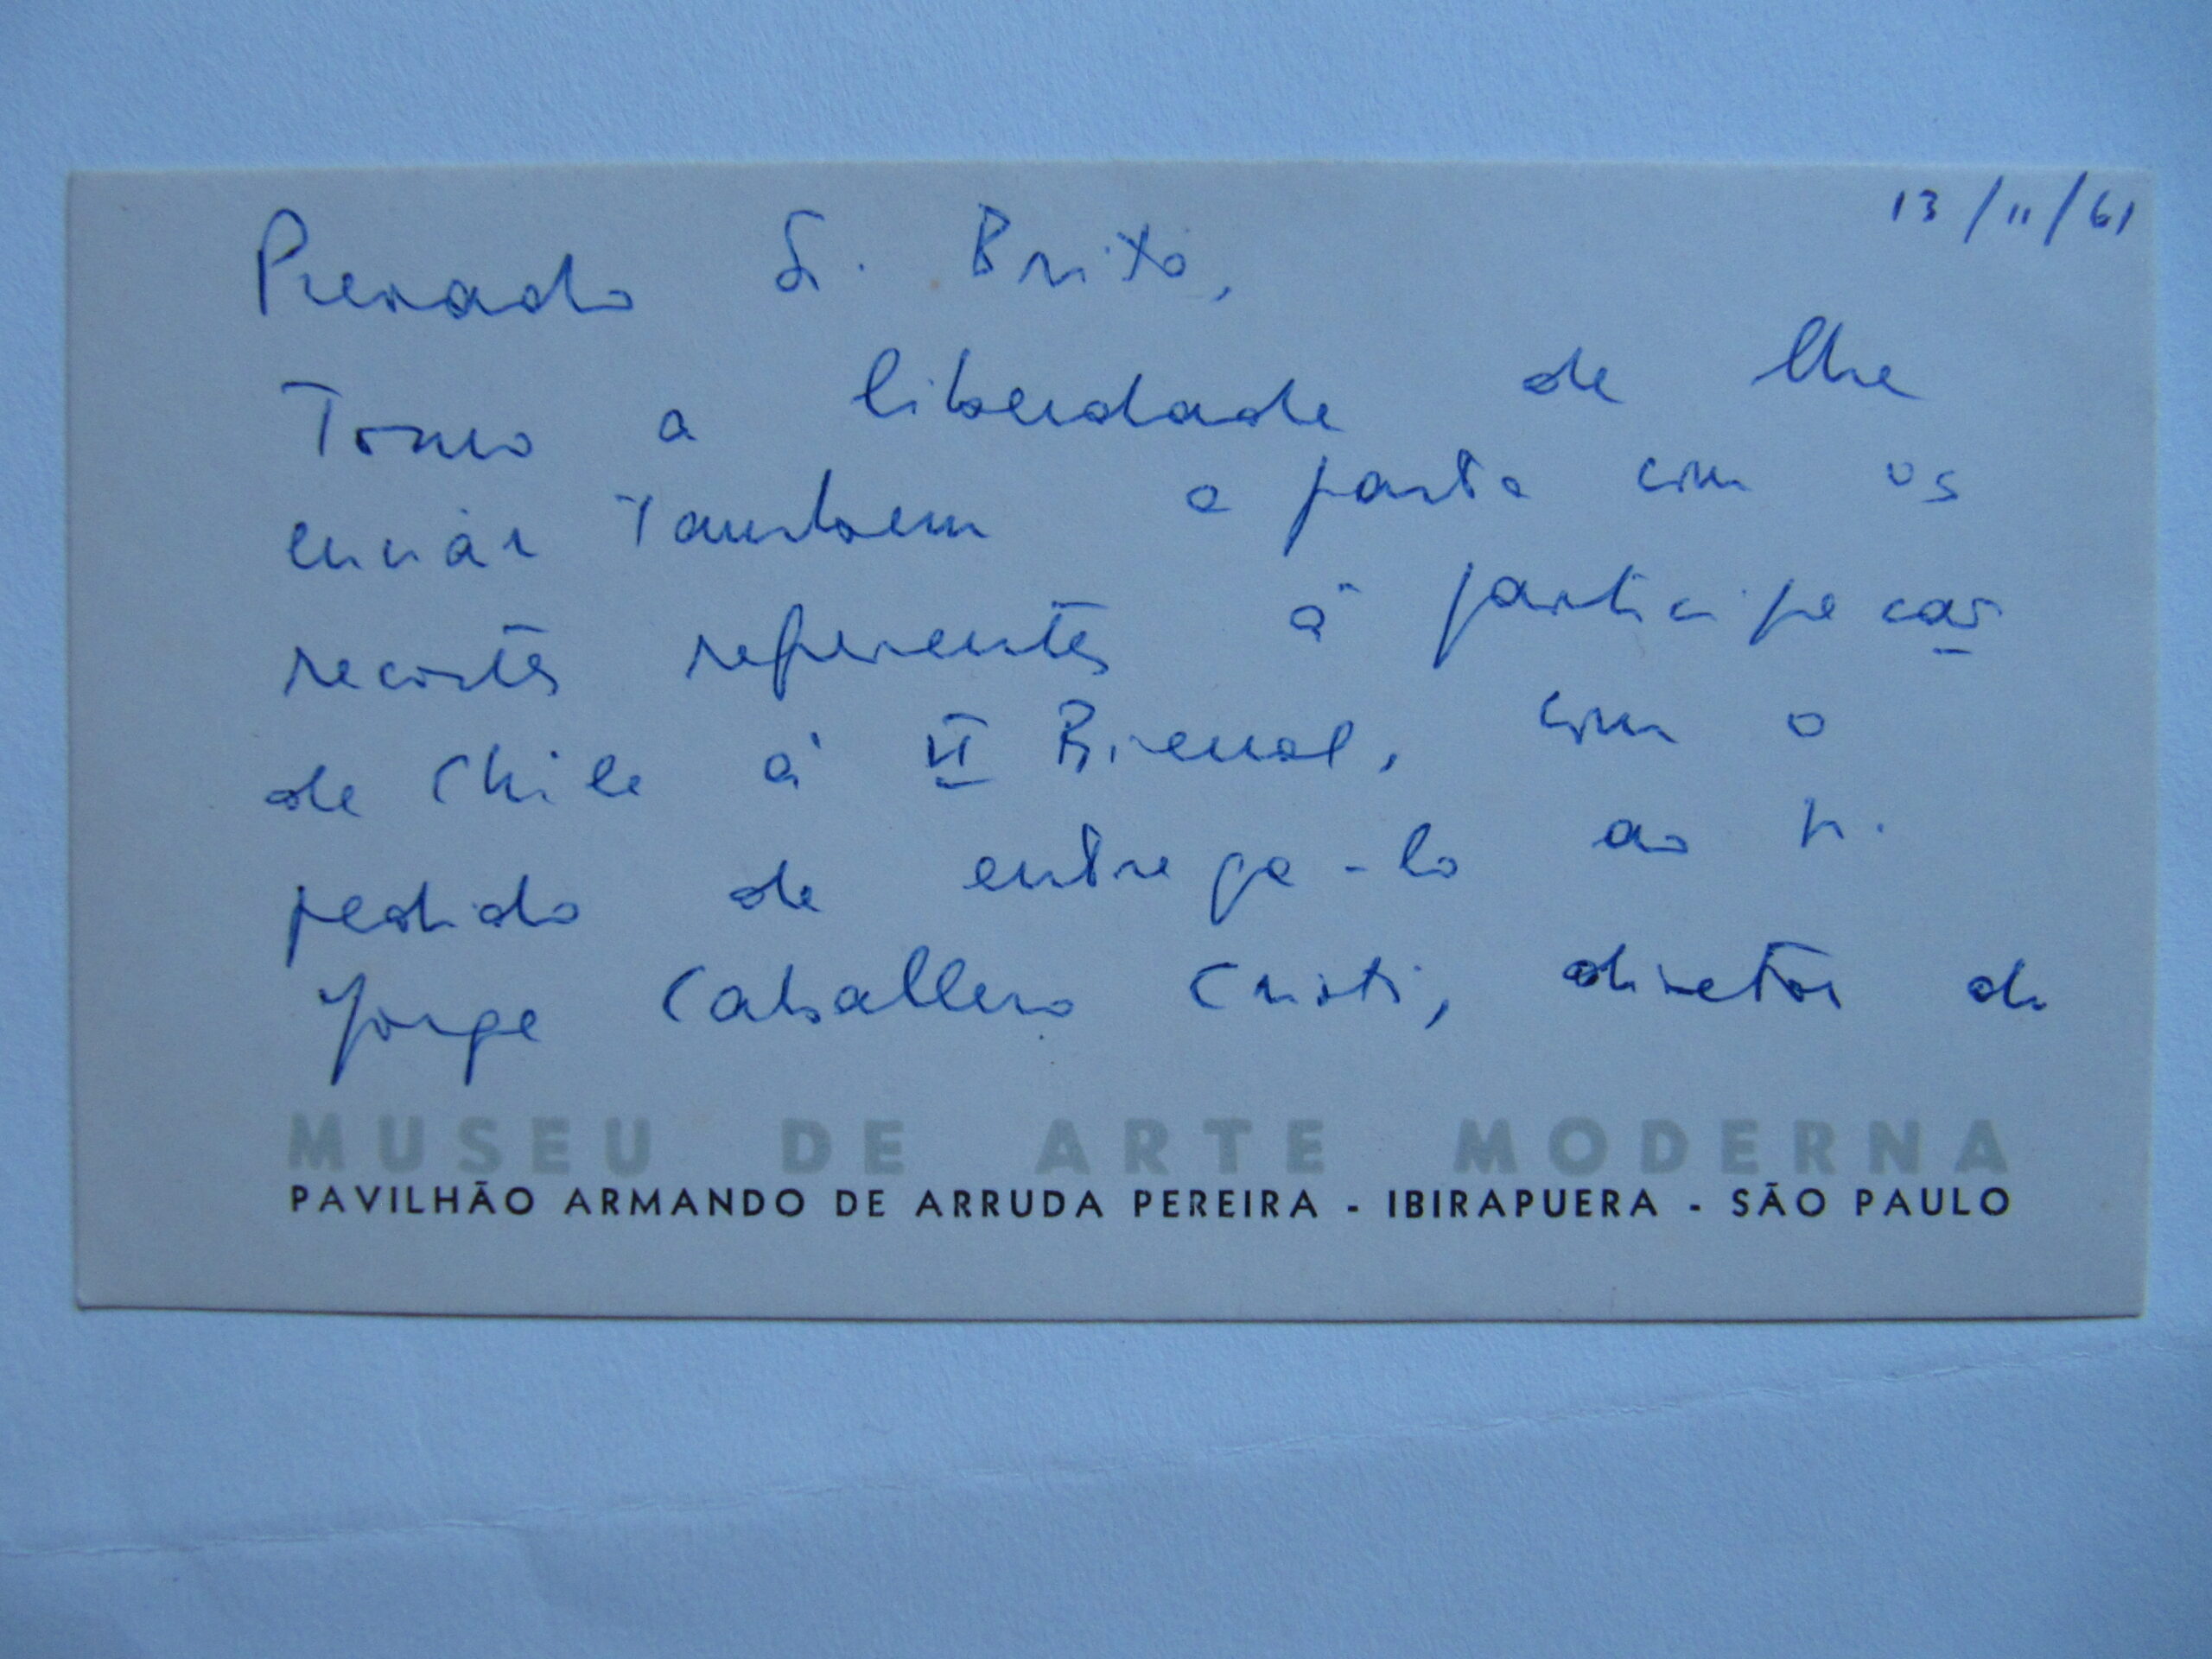 13/11/61
Prezado Sr. Brito,
Tomo a liberdade de lhe
enviar tambem a pasta com os
recortes referentes à participação
de Chile à VI Bienal, com o
pedido de entrega-lo ao Sr.
Jorge Caballero Cristi, diretor do
MUSEU DE ARTE MODERNA
PAVILHÃO ARMANDO DE ARRUDA PEREIRA - IBIRAPUERA - SÃO PAULO